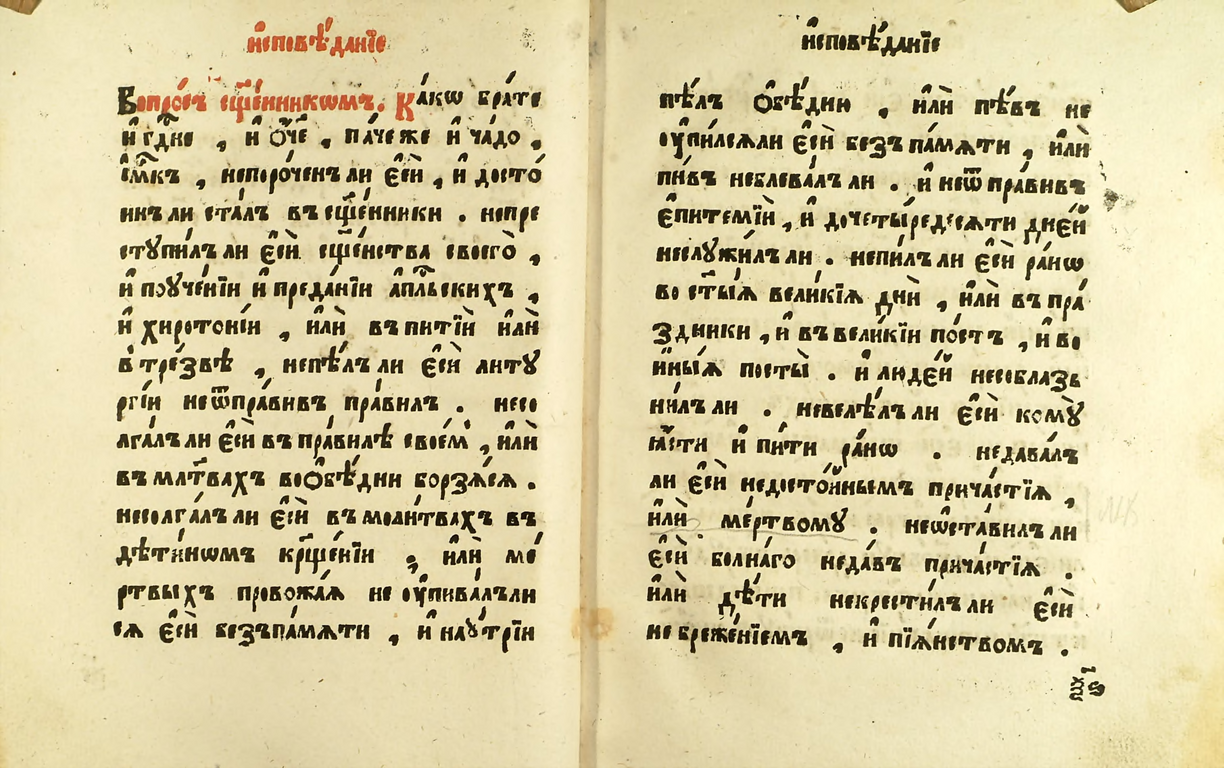 и҆сповѣ́данїе
Вопро́съ сщ҃е́нникѡмъ. Ка́кѡ бра́те
и҆ гдⷭ҇не , и҆ ѻ҆́ч҃е , па́че же и҆ ча́до ,
и҆́мкъ , непоро́ченъ ли є҆сѝ , и҆ досто́
инъ ли ста́лъ въ сщ҃е́нники . непре
ступи́лъ ли є҆сѝ сщ҃е́нства своегѡ̀ ,
и҆ поуче́нїи и҆ преда́нїи а҆пⷭ҇льскихъ ,
и҆ хиротоні́и , и҆лѝ въ питїѝ и҆лѝ
в тре́звѣ , непѣ́лъ ли є҆сѝ литꙋ
ргі́и неѿпра́вивъ пра́вилъ . несо
лга́лъ ли є҆сѝ въ пра́вилѣ свое́мъ , и҆лѝ
въ мл҃твахъ во ѻ҆бѣ́дни борзѧ́сѧ .
несолга́лъ ли є҆сѝ въ моли́твахъ въ
дѣ́тинѡмъ крⷳ҇щенїи , и҆лѝ ме́
ртвыхъ провожа́ѧ не оу҆пива́лъ ли
сѧ є҆сѝ безъ па́мѧти , и҆ наꙋ́трїи
и҆сповѣ́данїе
пѣ́лъ ѻ҆бѣ́дню , и҆лѝ пѣ́въ не
оу҆пилсѧ́ ли є҆сѝ безъ па́мѧти , и҆лѝ
пи́въ неблева́лъ ли . и҆ неѿпра́вивъ
є҆питемїѝ , и҆ до четы́редесѧти дне́й
неслꙋжи́лъ ли . непи́лъ ли є҆сѝ ра́нѡ
во ст҃ы́ѧ вели́кїѧ днѝ , и҆лѝ въ пра́
здники , и҆ въ вели́кїи по́стъ , и҆ во
и҆ны́ѧ посты̀ . и҆ люде́й несоблазь
ни́лъ ли . невелѣ́лъ ли є҆сѝ комꙋ̀
ꙗ҆́сти и҆ пи́ти ра́нѡ . недава́лъ
ли є҆сѝ недосто́йнымъ прича́стїѧ ,
и҆лѝ ме́ртвомꙋ . неѡ҆ста́вилъ ли
є҆сѝ болна́го неда́въ прича́стїѧ .
и҆лѝ дѣ́ти некрести́лъ ли є҆сѝ
небреже́нїемъ , и҆ пїѧ́нствомъ .